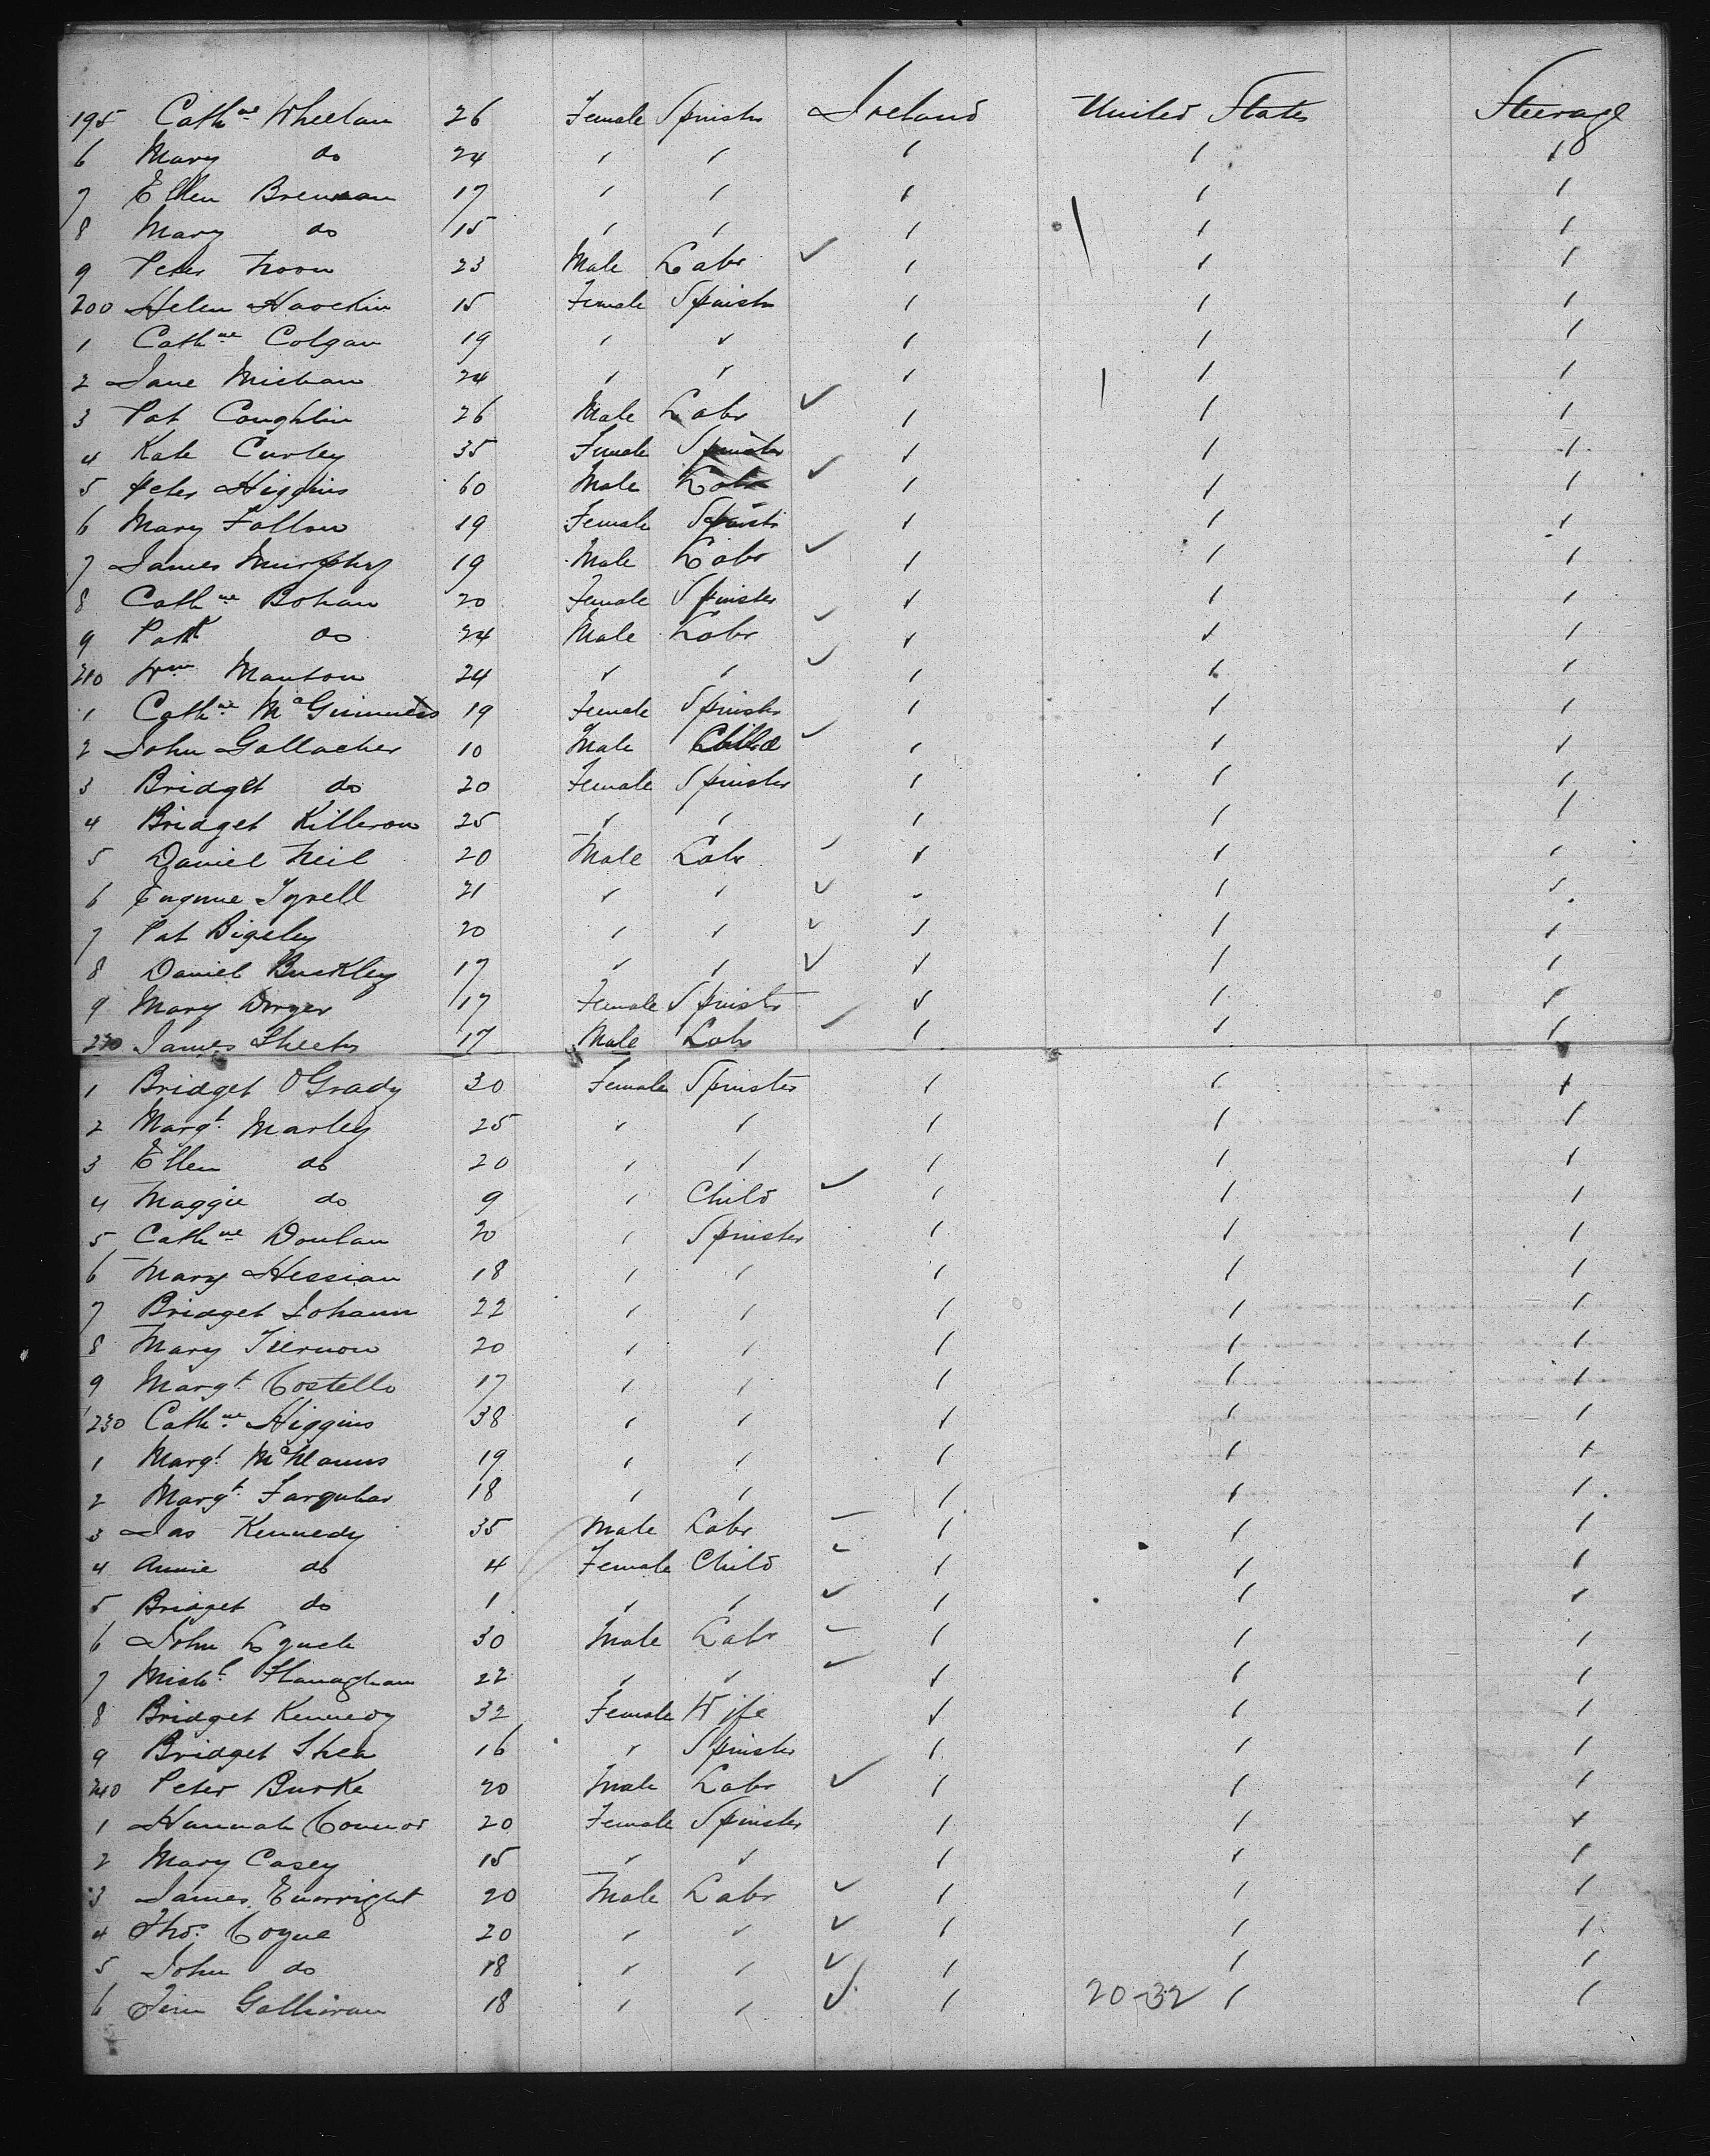 195 Cathne Whelan 26 Female Spinster Ireland United States Steerage
6 Mary do 24 " " " " "
7 Ellen Brennan 17 " " " " "
8 Mary do 15 " " " " "
9 Peter Noon 23 Male Labr " " "
200 Helen 15 Female Spinstr " " "
1 Cathne Colgan 19 " " " " "
2 Jane 24 " " " " "
3 Pat Coughlin 26 Male Labr " " "
4 Kate Curley 35 Female Spinster " " "
5 Peter Higgins 60 Male Labr " " "
6 Mary Fallon 19 Female Spinstr " " "
7 James Murphy 19 Male Labr " " "
8 Cathne Bohan 20 Female Spinster " " "
9 Patk do 24 Male Labr " " "
210 Wm Manton 24 " " " " "
1 Cathne McGuinness 19 Female Spinster " " "
2 John Gallacher 10 Male Child " " "
3 Bridget do 20 Female Spinster " " "
4 Bridget Killeron 25 " " " " "
5 Daniel Neil 20 Male Labr " " "
6 Eugene Tyrell 21 " " " " "
7 Pat 20 " " " " "
8 Daniel Buckley 17 " " " " "
9 Mary 17 Female Spinstr " " "
220 James 17 Male Labr " " "
1 Bridget OGrady 30 Female Spinster " " "
2 Margt Marley 25 " " " " "
3 Ellen do 20 " " " " "
4 Maggie do 9 " Child " " "
5 Cathne Donlan 20 " Spinster " " "
6 Mary Hessian 18 " " " " "
7 Bridget 22 " " " " "
8 Mary Tiernon 20 " " " " "
9 Margt Costello 17 " " " " "
230 Cathne Higgins 38 " " " " "
1 Margt McManus 19 " " " " "
2 Margt Farquhar 18 " " " " "
3 Jas Kennedy 35 Male Labr " " "
4 Annie do 4 Female Child " " "
5 Bridget do 1 " " " " "
6 John Lynch 30 Male Labr " " "
7 Michl Flanaghan 22 " " " " "
8 Bridget Kennedy 32 Female Wife " " "
9 Bridget Shea 16 " Spinster " " "
240 Peter Burke 20 Male Labr " " "
1 Hannah Connor 20 Female Spinster " " "
2 Mary Casey 15 " " " " "
3 James Enorright 20 Male Labr " " "
4 Thos. Coyne 20 " " " " "
5 John do 18 " " " " "
6 Jim Gallivan 18 " " " 20-32 " "